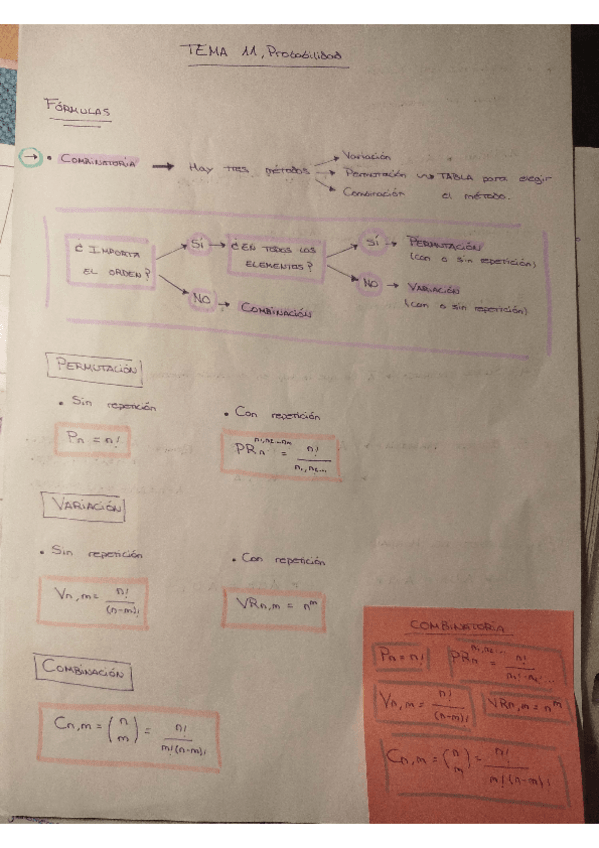 TEMA 11, Probabilidad
FÓRMULAS
→ • COMBINATORIA → Hay tres métodos → Variación
→ Permutación ⇝ TABLA para elegir
→ Combinación el método.
¿ IMPORTA EL ORDEN?
SÍ → ¿EN TODOS LOS ELEMENTOS?
SÍ → PERMUTACIÓN
(con o sin repetición)
NO → VARIACIÓN
(con o sin repetición)
NO → COMBINACIÓN
PERMUTACIÓN
• Sin repetición
Pn = n!
• Con repetición
PRn^{n1,n2...nn} = n! / n1, n2...
VARIACIÓN
• Sin repetición
Vn,m = n! / (n-m)!
• Con repetición
VRn,m = n^m
COMBINACIÓN
Cn,m = (n m) = n! / m!(n-m)!
COMBINATORIA
Pn = n!
PRn^{n1,n2...} = n! / n1!·n2!...
Vn,m = n! / (n-m)!
VRn,m = n^m
Cn,m = (n m) = n! / m!(n-m)!